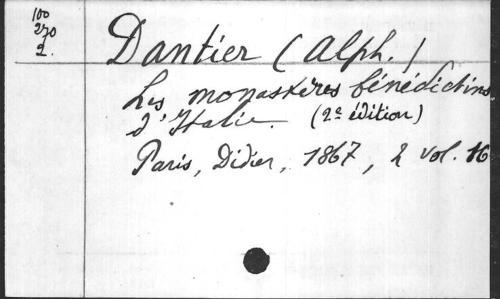 100
270
2.
Dantier (Alph.)
Les monastères bénédictins
d'Italie. (2e édition)
Paris, Didier, 1867, 2 vol. 16